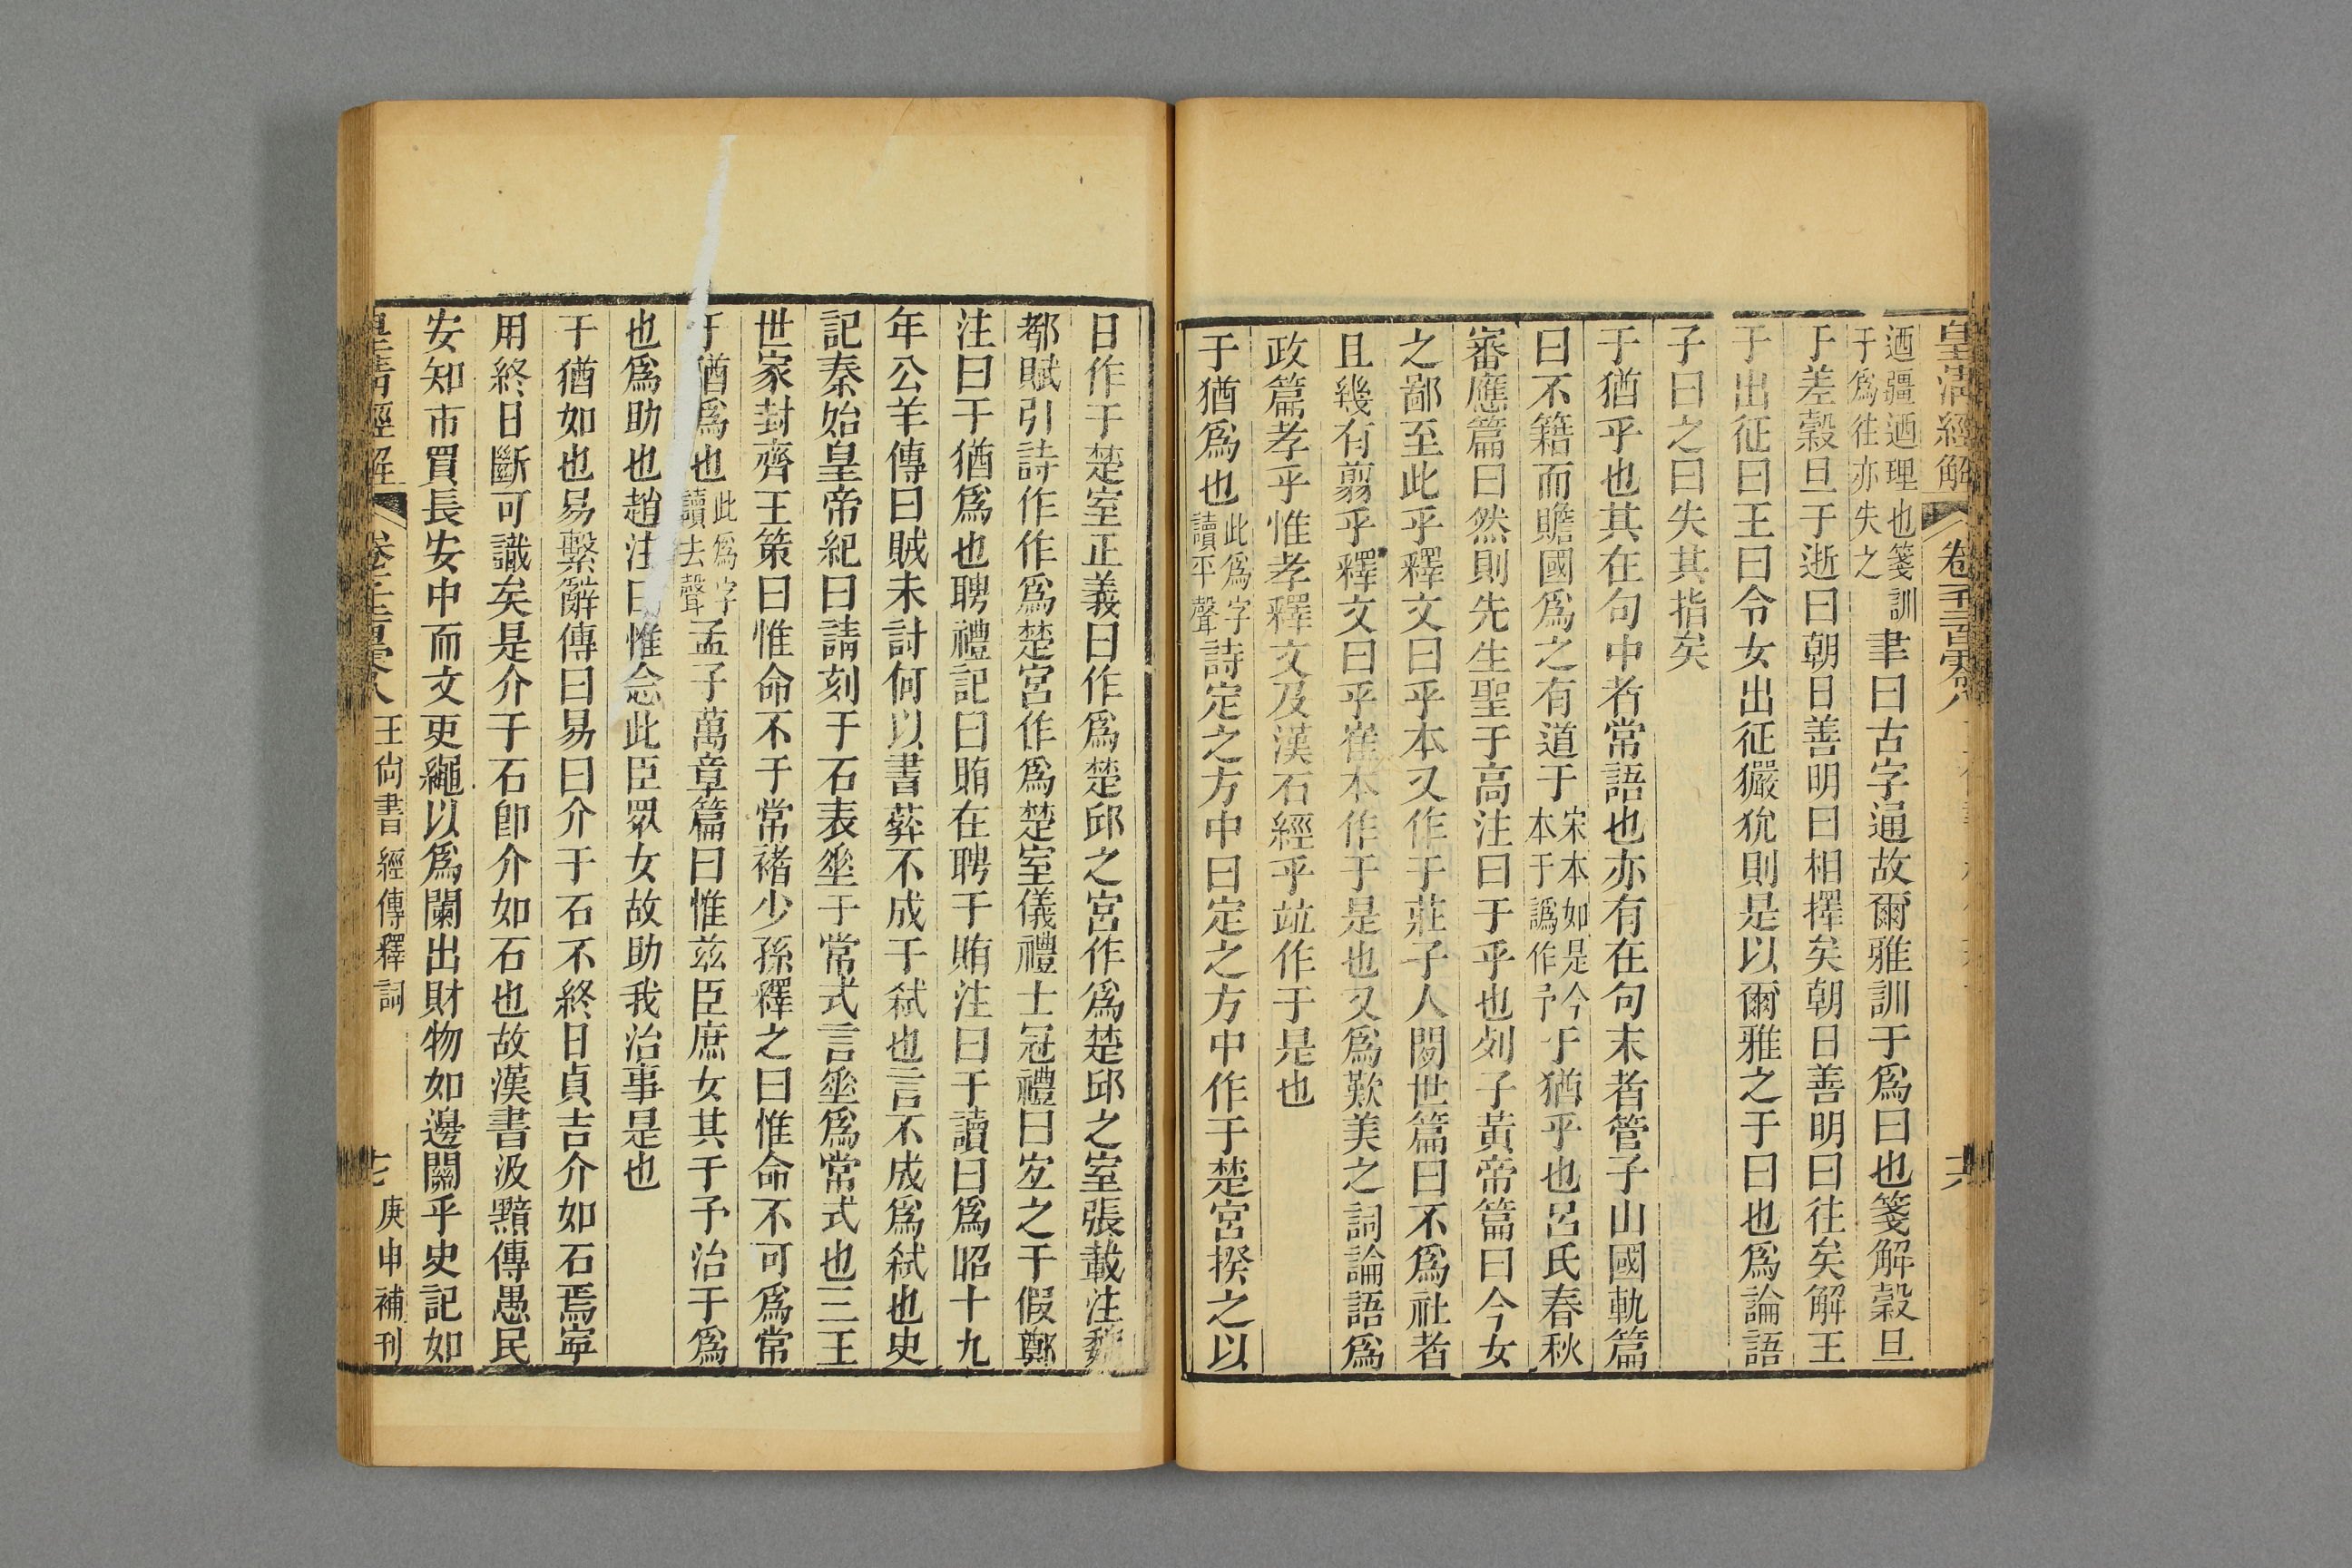 皇清經解 卷一千二百零八
十六
迺疆迺理也箋訓
于爲往亦失之
聿曰古字通故爾雅訓于爲曰也箋解穀旦
于差穀旦于逝曰朝日善明曰相擇矣朝日善明曰往矣解王
于出征曰王曰令女出征玁狁則是以爾雅之于曰也爲論語
子曰之曰失其指矣
于猶乎也其在句中者常語也亦有在句末者管子山國軌篇
曰不籍而贍國爲之有道于
宋本如是今
本于譌作予
于猶乎也呂氏春秋
審應篇曰然則先生聖于高注曰于乎也列子黃帝篇曰今女
之鄙至此乎釋文曰乎本又作于莊子人閒世篇曰不爲社者
且幾有翦乎釋文曰乎崔本作于是也又爲歎美之詞論語爲
政篇孝乎惟孝釋文及漢石經乎竝作于是也
于猶爲也
此爲字
讀平聲
詩定之方中曰定之方中作于楚宮揆之以
日作于楚室正義曰作爲楚邱之宮作爲楚邱之室張載注魏
都賦引詩作作爲楚宮作爲楚室儀禮士冠禮曰宐之于假鄭
注曰于猶爲也聘禮記曰賄在聘于賄注曰于讀曰爲昭十九
年公羊傳曰賊未討何以書葬不成于弒也言不成爲弒也史
記秦始皇帝紀曰請刻于石表埀于常式言埀爲常式也三王
世家封齊王策曰惟命不于常褚少孫釋之曰惟命不可爲常
于猶爲也
此爲字
讀去聲
孟子萬章篇曰惟茲臣庶女其于予治于爲
也爲助也趙注曰惟念此臣眾女故助我治事是也
于猶如也易繫辭傳曰易曰介于石不終日貞吉介如石焉寧
用終日斷可識矣是介于石卽介如石也故漢書汲黯傳愚民
安知市買長安中而文吏繩以爲闌出財物如邊關乎史記如
皇清經解 卷一千二百零八 王尙書經傳釋詞
十七 庚申補刊